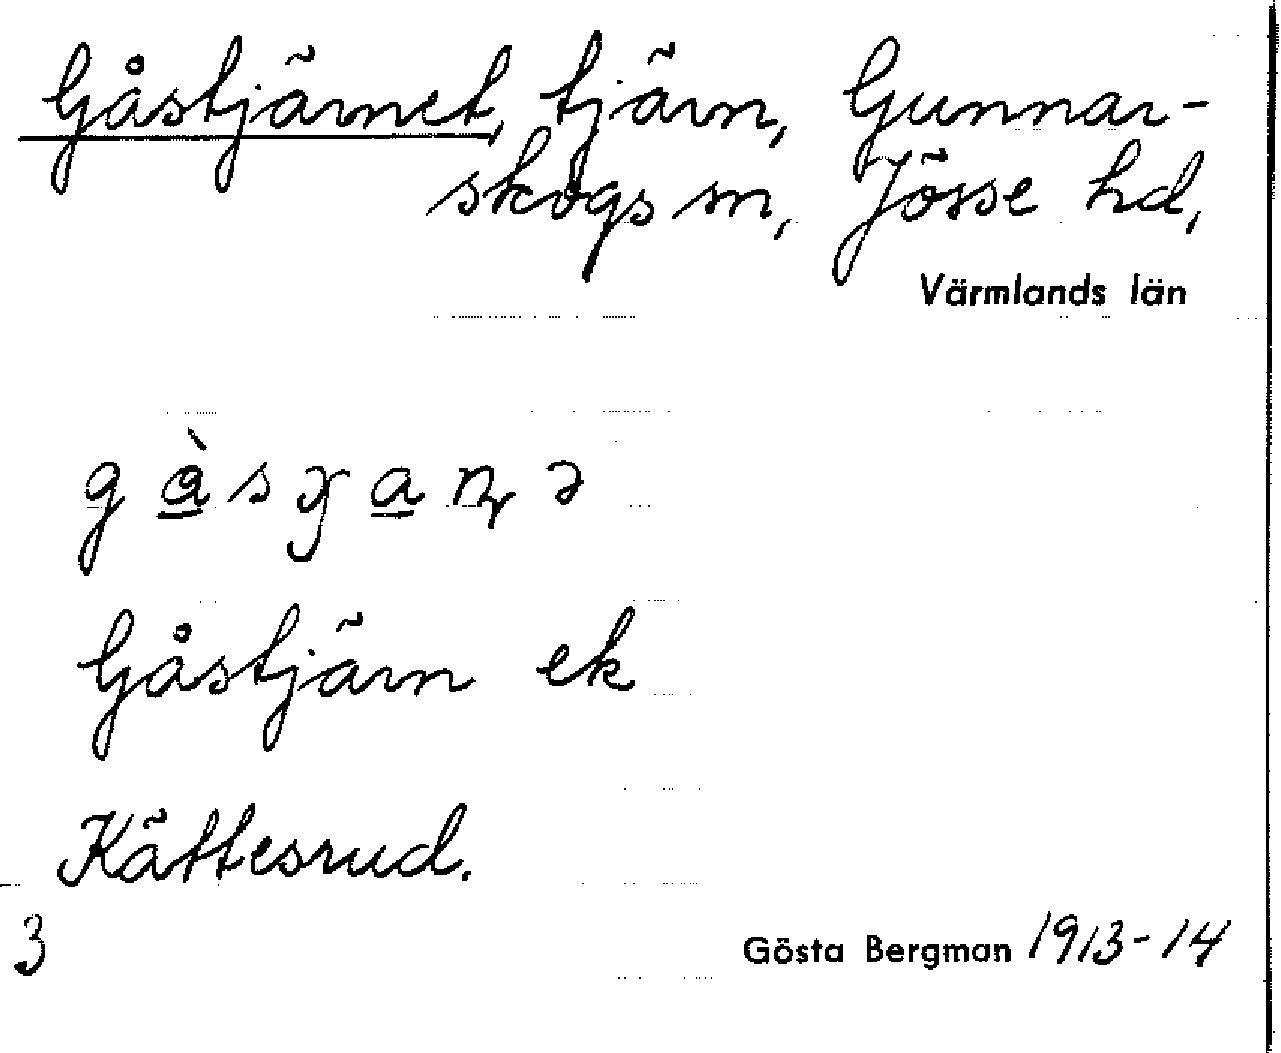 Gåstjärnet, tjärn, Gunnar-
skogs sn, Jösse hd,
Värmlands län
Gåstjärn ek
Kättesrud.
3
Gösta Bergman 1913-14